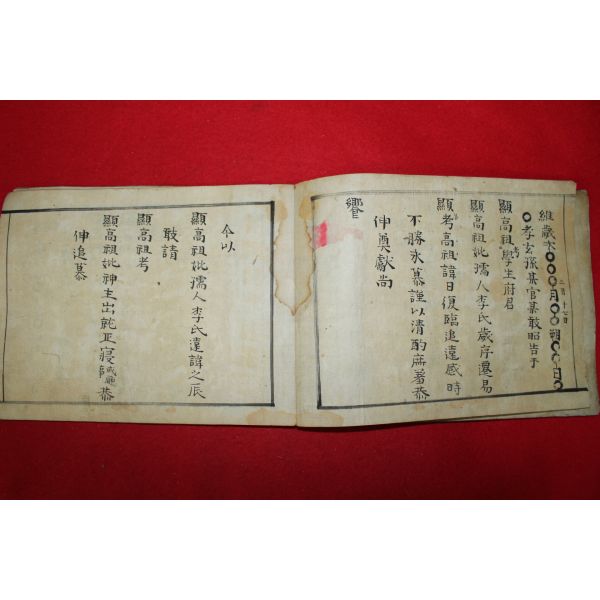 維歲次〇〇〇月〇〇朔〇〇日〇〇
二月 十七日
〇孝玄孫某官某敢昭告于
顯高祖考學生府君
顯高祖妣孺人李氏歲序遷易
顯考高祖諱日復臨追遠感時
不勝永慕謹以清酌庶羞恭
伸奠獻尙
饗
今以
顯高祖妣孺人李氏遠諱之辰
敢請
顯高祖考
顯高祖妣神主出就正寢或廳事恭
伸追慕